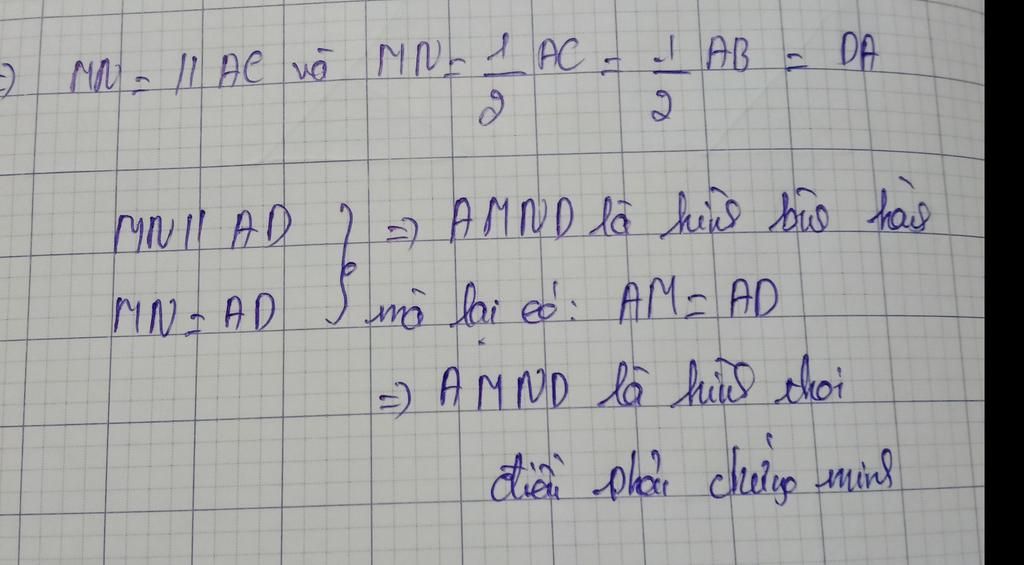 ⇒ MN = // AC và MN = 1/2 AC = 1/2 AB = DA
MN // AD } ⇒ AMND là hình bình hành
MN = AD } mà lại có: AM = AD
⇒ AMND là hình thoi
điều phải chứng minh